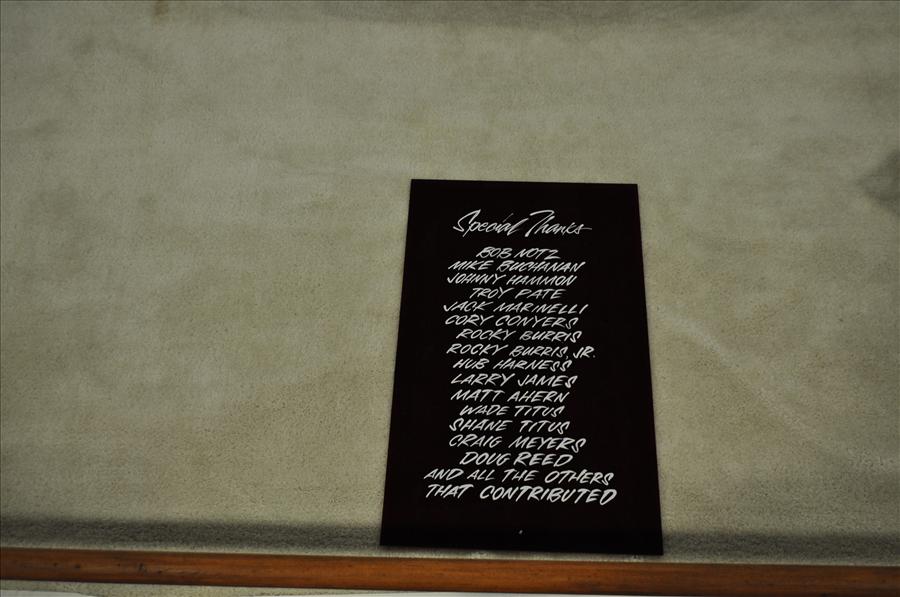 Special Thanks
BOB NOTZ
MIKE BUCHANAN
JOHNNY HAMMON
TROY PATE
JACK MARINELLI
CORY CONYERS
ROCKY BURRIS
ROCKY BURRIS, JR.
HUB HARNESS
LARRY JAMES
MATT AHERN
WADE TITUS
SHANE TITUS
CRAIG MEYERS
DOUG REED
AND ALL THE OTHERS
THAT CONTRIBUTED